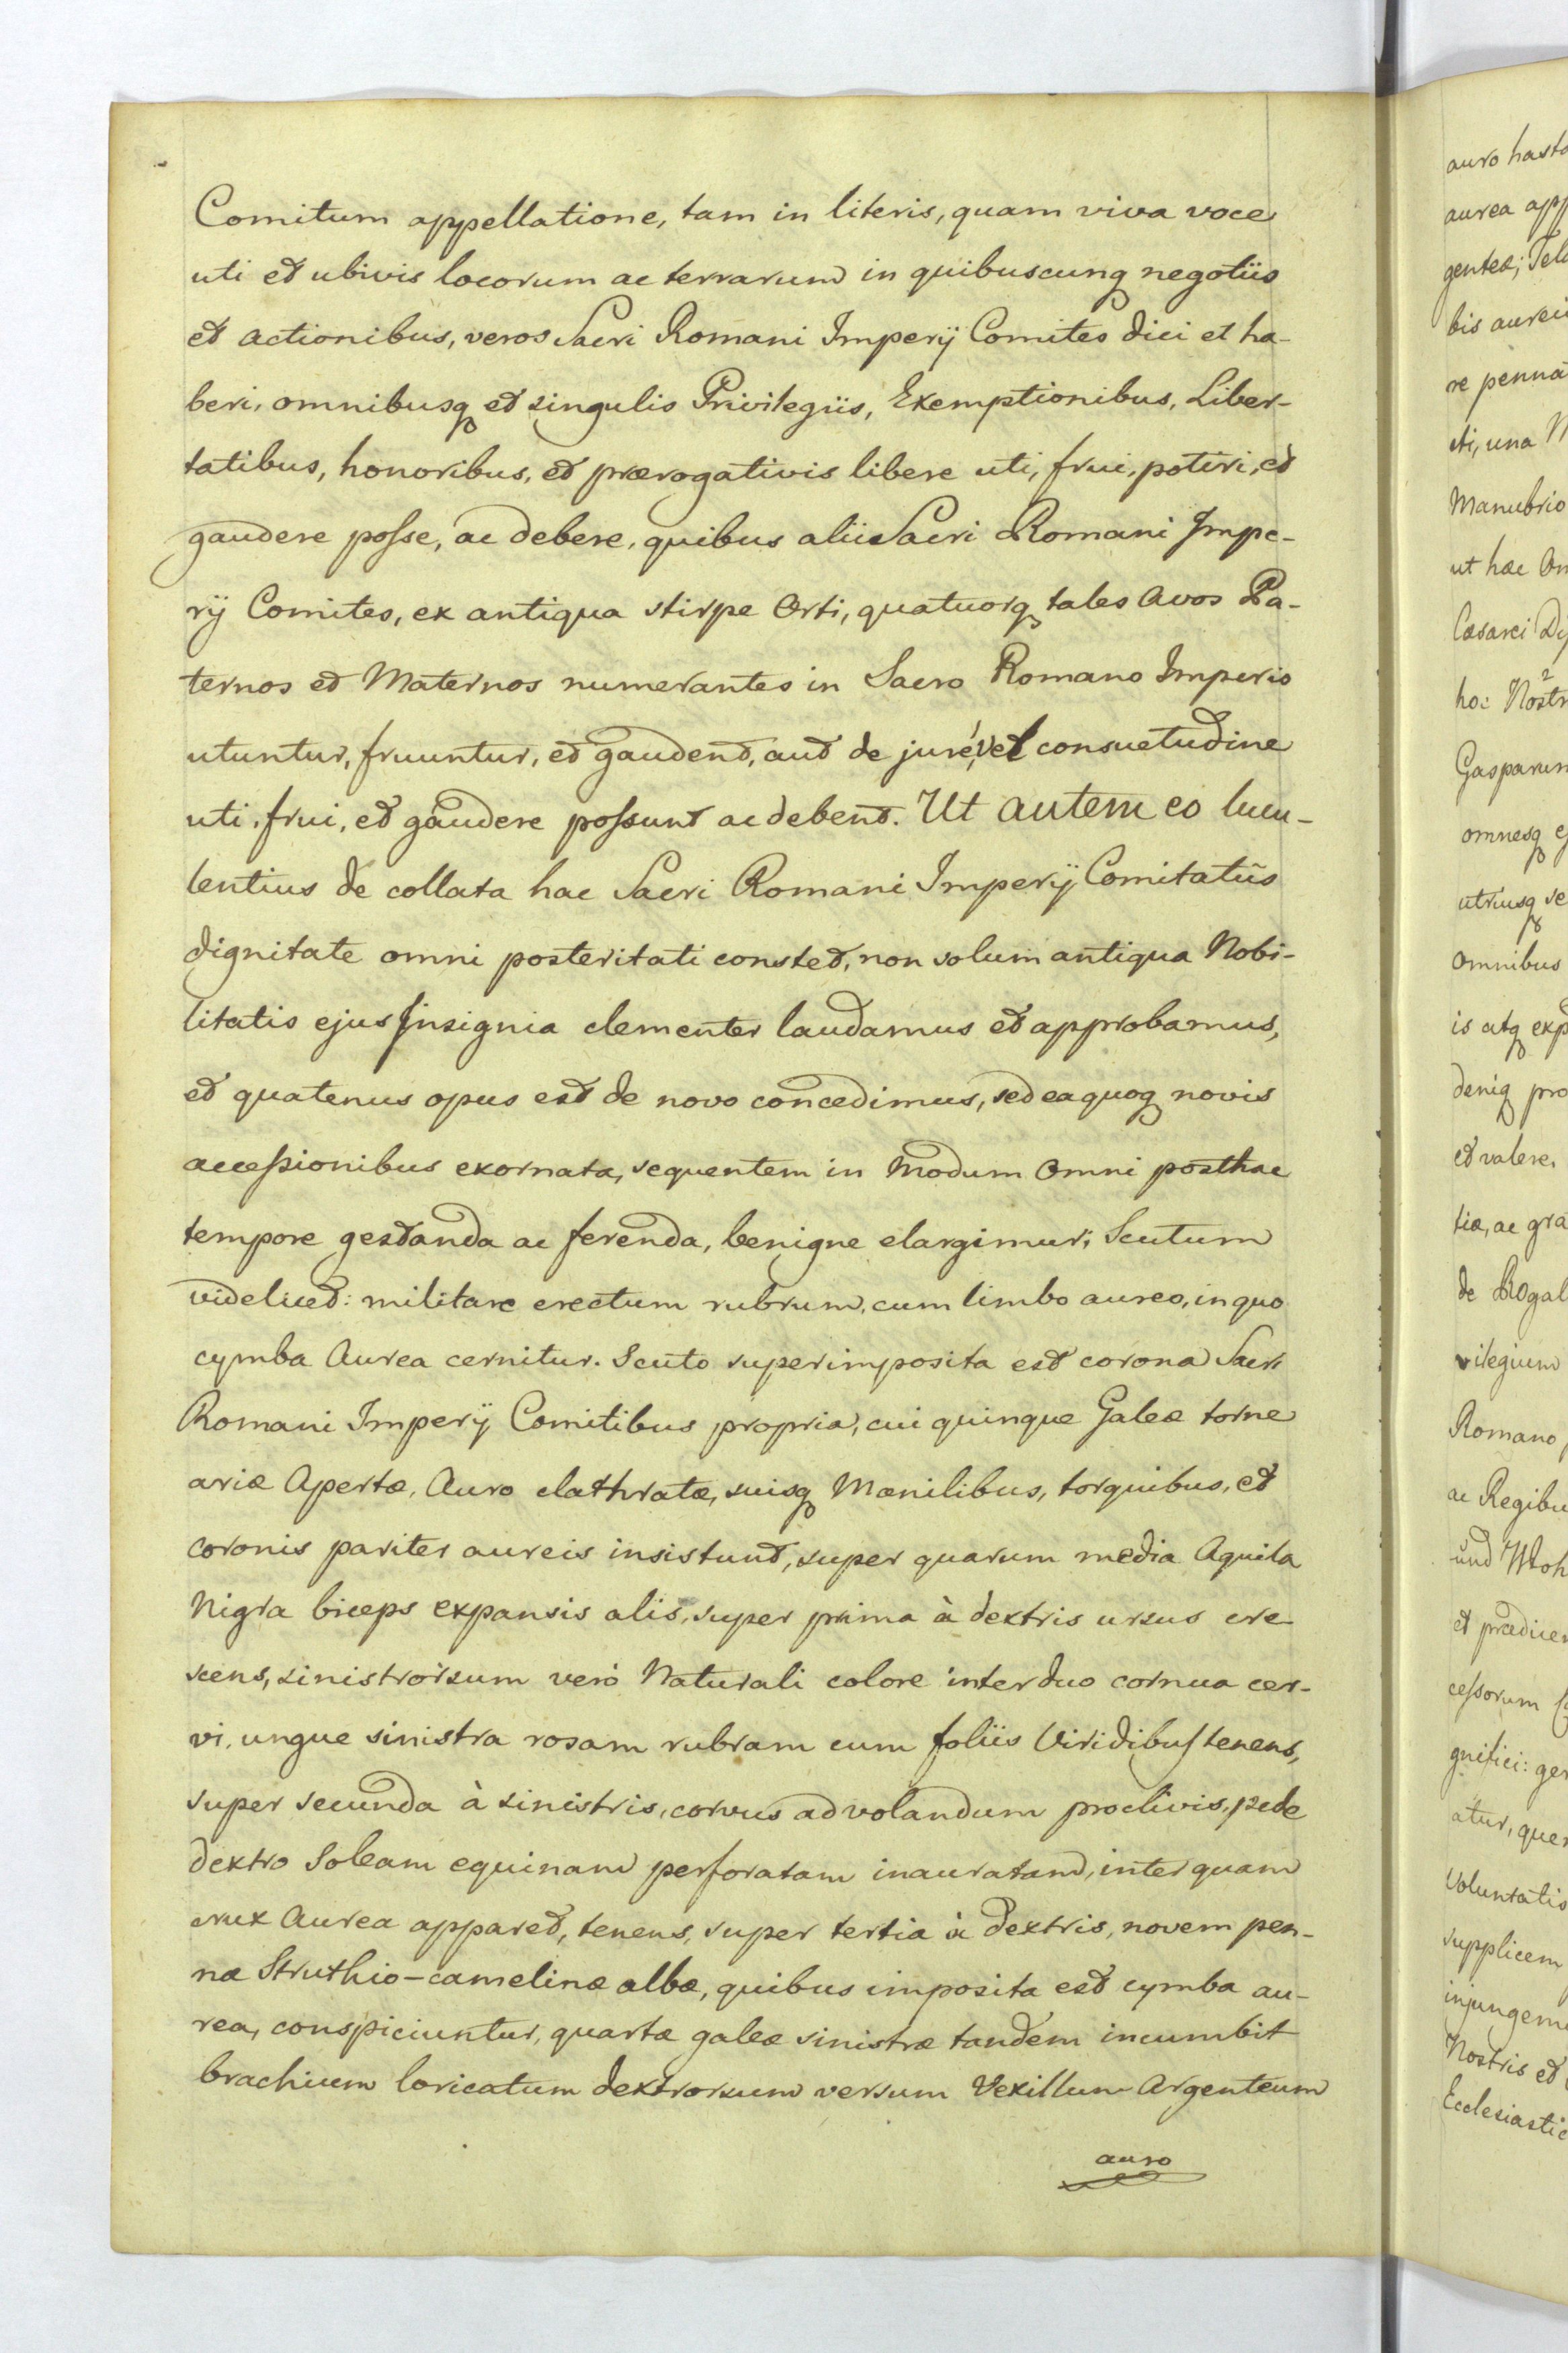 Comitum appellatione, tam in literis, quam viva voce
uti et ubivis locorum ac terrarum in quibuscunq negotiis
et actionibus, veros Sacri Romani Imperij Comites dici et ha-
beri, omnibusq et singulis Privilegiis, Exemptionibus, Liber-
tatibus, honoribus, et prærogativis libere uti, frui, potiri, et
gaudere posse, ac debere, quibus alii Sacri Romani Impe-
rij Comites, ex antiqua stirpe Orti, quatuorq tales Avos Pa-
ternos et Maternos numerantes in Sacro Romano Imperio
utuntur, fruuntur, et gaudent, aut de jure, vel consuetudine
uti, frui, et gaudere possunt ac debent. Ut autem eo lucu-
lentius de collata hac Sacri Romani Imperij Comitatûs
dignitate omni posteritati constet, non solum antiqua Nobi-
litatis ejus Insignia clementer laudamus et approbamus,
et quatenus opus est de novo concedimus, sed ea quoq novis
accessionibus exornata, sequentem in Modum Omni posthac
tempore gestanda ac ferenda, benigne elargimur; Scutum
videlicet: militare erectum rubrum, cum limbo aureo, in quo
cymba Aurea cernitur. Scuto superimposita est corona Sacri
Romani Imperij Comitibus propria, cui quinque Galeæ torne
ariæ Apertæ, Auro clathratæ, suisq Mœnilibus, torquibus, et
coronis pariter aureis insistunt, super quarum media Aquila
Nigra biceps expansis alis, super prima à dextris ursus cre-
scens, sinistrorsum verò Naturali colore inter duo cornua cer-
vi, ungue sinistra rosam rubram cum foliis Viridibus tenens,
super secunda à sinistris, corvus ad volandum proclivis, pede
dextro Soleam equinam perforatam inauratam, inter quam
crux Aurea apparet, tenens, super tertia à dextris, novem pen-
næ Struthio-camelinæ albæ, quibus imposita est cymba au-
rea, conspiciuntur, quartæ galeæ sinistræ tandem incumbit
brachium loricatum dextrorsum versum Vexillum Argenteum
auro
auro hasta
aurea app
gentea; Tela
bis aurei
re penna
cti, una
Manubrio
ut hæc Om
Cæsarei Di
hoc Nostr
Gasparum
omnesq
utriusq se
Omnibus
is atq exp
deniq pro
et valere,
tiæ, ac gra
de Rogal
vilegium
Romano
ac Regibu
und Woh
et prædice
cessorum
gnifici: ge
atur, que
Voluntatis
supplicem
injungem
Nostris et
Ecclesiastic